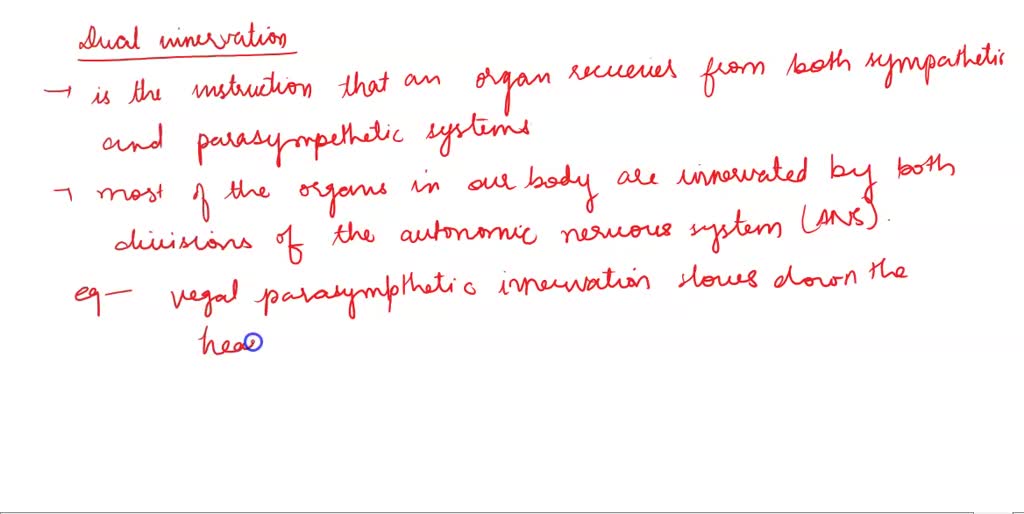 Dual innervation
→ is the instruction that an organ recieves from both sympathetic
and parasympethetic systems
→ most of the organs in our body are innervated by both
divisions of the autonomic nervous system (ANS).
eg — vegal parasympthetic innervation slows down the
hea